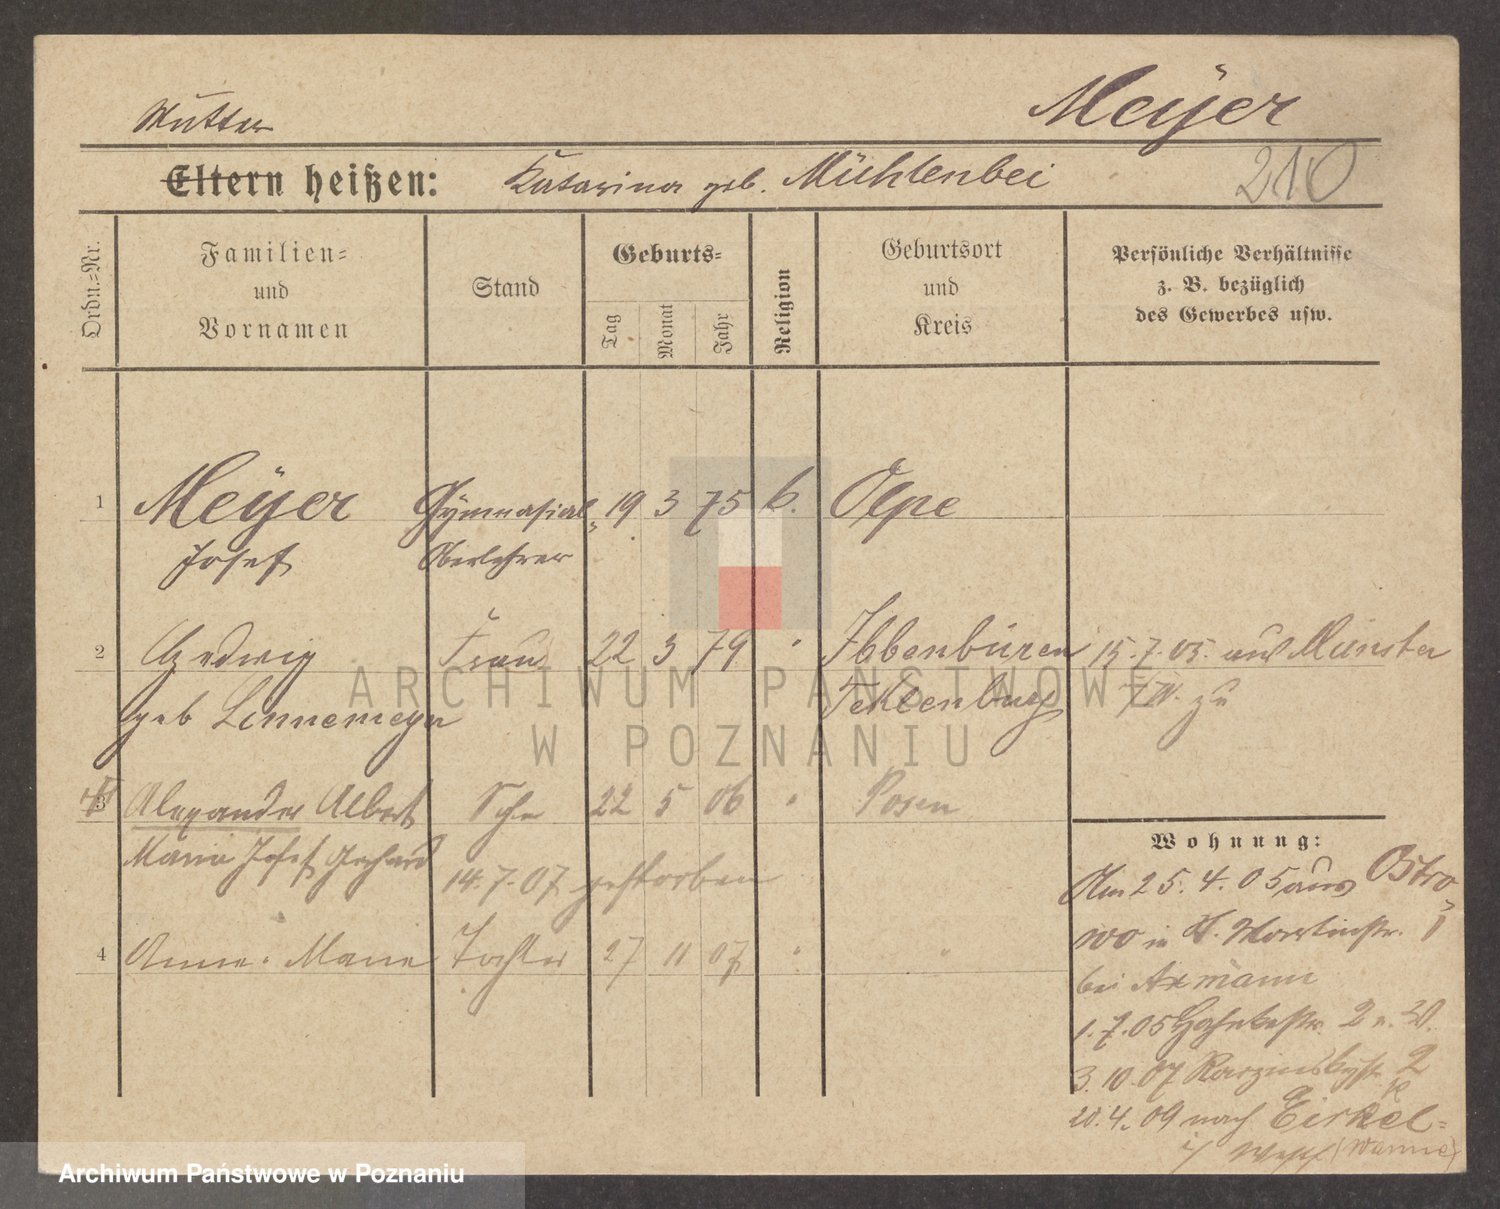 Meÿer
Mutter
Eltern heißen: Katarina geb. Mühlenbei
210
Ordn.-Nr.
Familien-
und
Vornamen
Stand
Geburts-
Tag
Monat
Jahr
Religion
Geburtsort
und
Kreis
Persönliche Verhältnisse
z. B. bezüglich
des Gewerbes usw.
1 Meÿer Gymnasial- 19 3 75 k. Olpe
Josef Oberlehrer
2 Hedwig Frau 22 3 79 " Ibbenbüren 15.7.05. aus Münster
geb Lennemeyer Teklenburg i/W. zu
3 Alexander Albert Sohn 22 5 06 " Posen
Maria Josef Gerhard 14.7.07 gestorben
4 Anne-Marie Tochter 27 11 07 " "
Wohnung:
Am 25.4.05 aus Ostro-
wo in St. Martinstr. 
bei Axmann
1.7.05 Hohelohestr. 2 
3.10.07 2
20.4.09 nach Eickel-
i/ Westf (Wanne)
ARCHIWUM PAŃSTWOWE
W POZNANIU
Archiwum Państwowe w Poznaniu